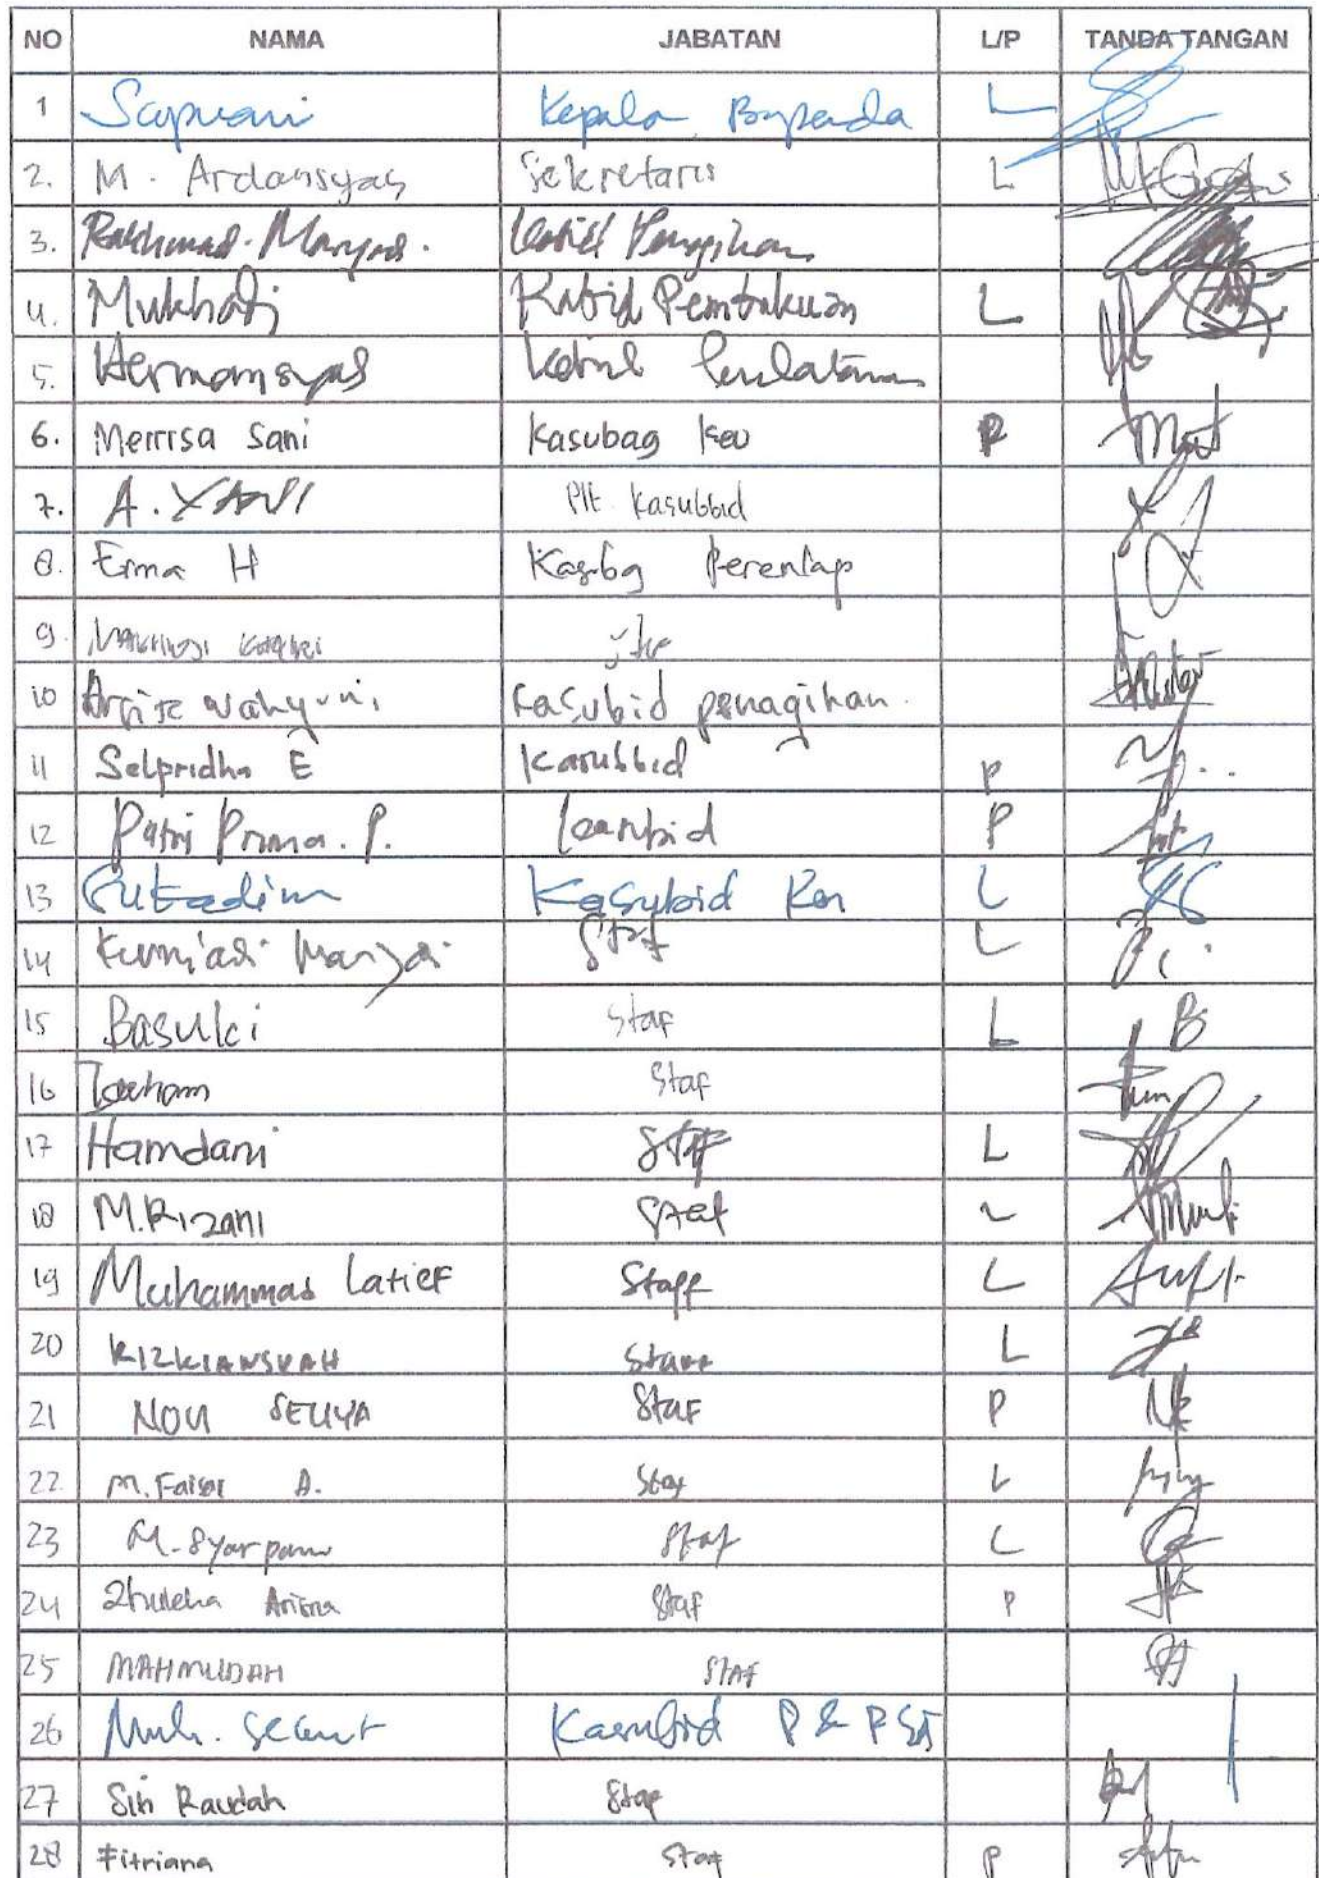 NO NAMA JABATAN L/P TANDA TANGAN
1 Sapuani Kepala Bapenda L
2. M. Ardansyah Sekretaris L
3. Rakhmad. Kabid Penagihan
4. Mukhadi Kabid Pembukuan L
5. Hermansyah Kabid Pendataan
6. Merrisa Sani Kasubag Keu P
7. A. YANI Plt. Kasubbid
8. Erma H Kasbg Perenlap
9.
10 wahyuni Kasubid penagihan.
11 Selpridha E Kasubbid P
12 Putri Prima. P. Kasubid P
13 Kasubid Ren L
14 Kurniadi Staf L
15 Basuki Staf L
16 Staf
17 Hamdani Staf L
18 M. Rizani Staf L
19 Muhammad Latief Staff L
20 RIZKIANSYAH Staff L
21 NOVI SELIYA Staf P
22. M. Faisal A. Staf L
23 M. Syarpani Staf L
24 Zhuleha Ariana Staf P
25 MAHMUDAH STAF
26 Muh. Kasubid P & P
27 Siti Raudah Staf
28 Fitriana Staf P